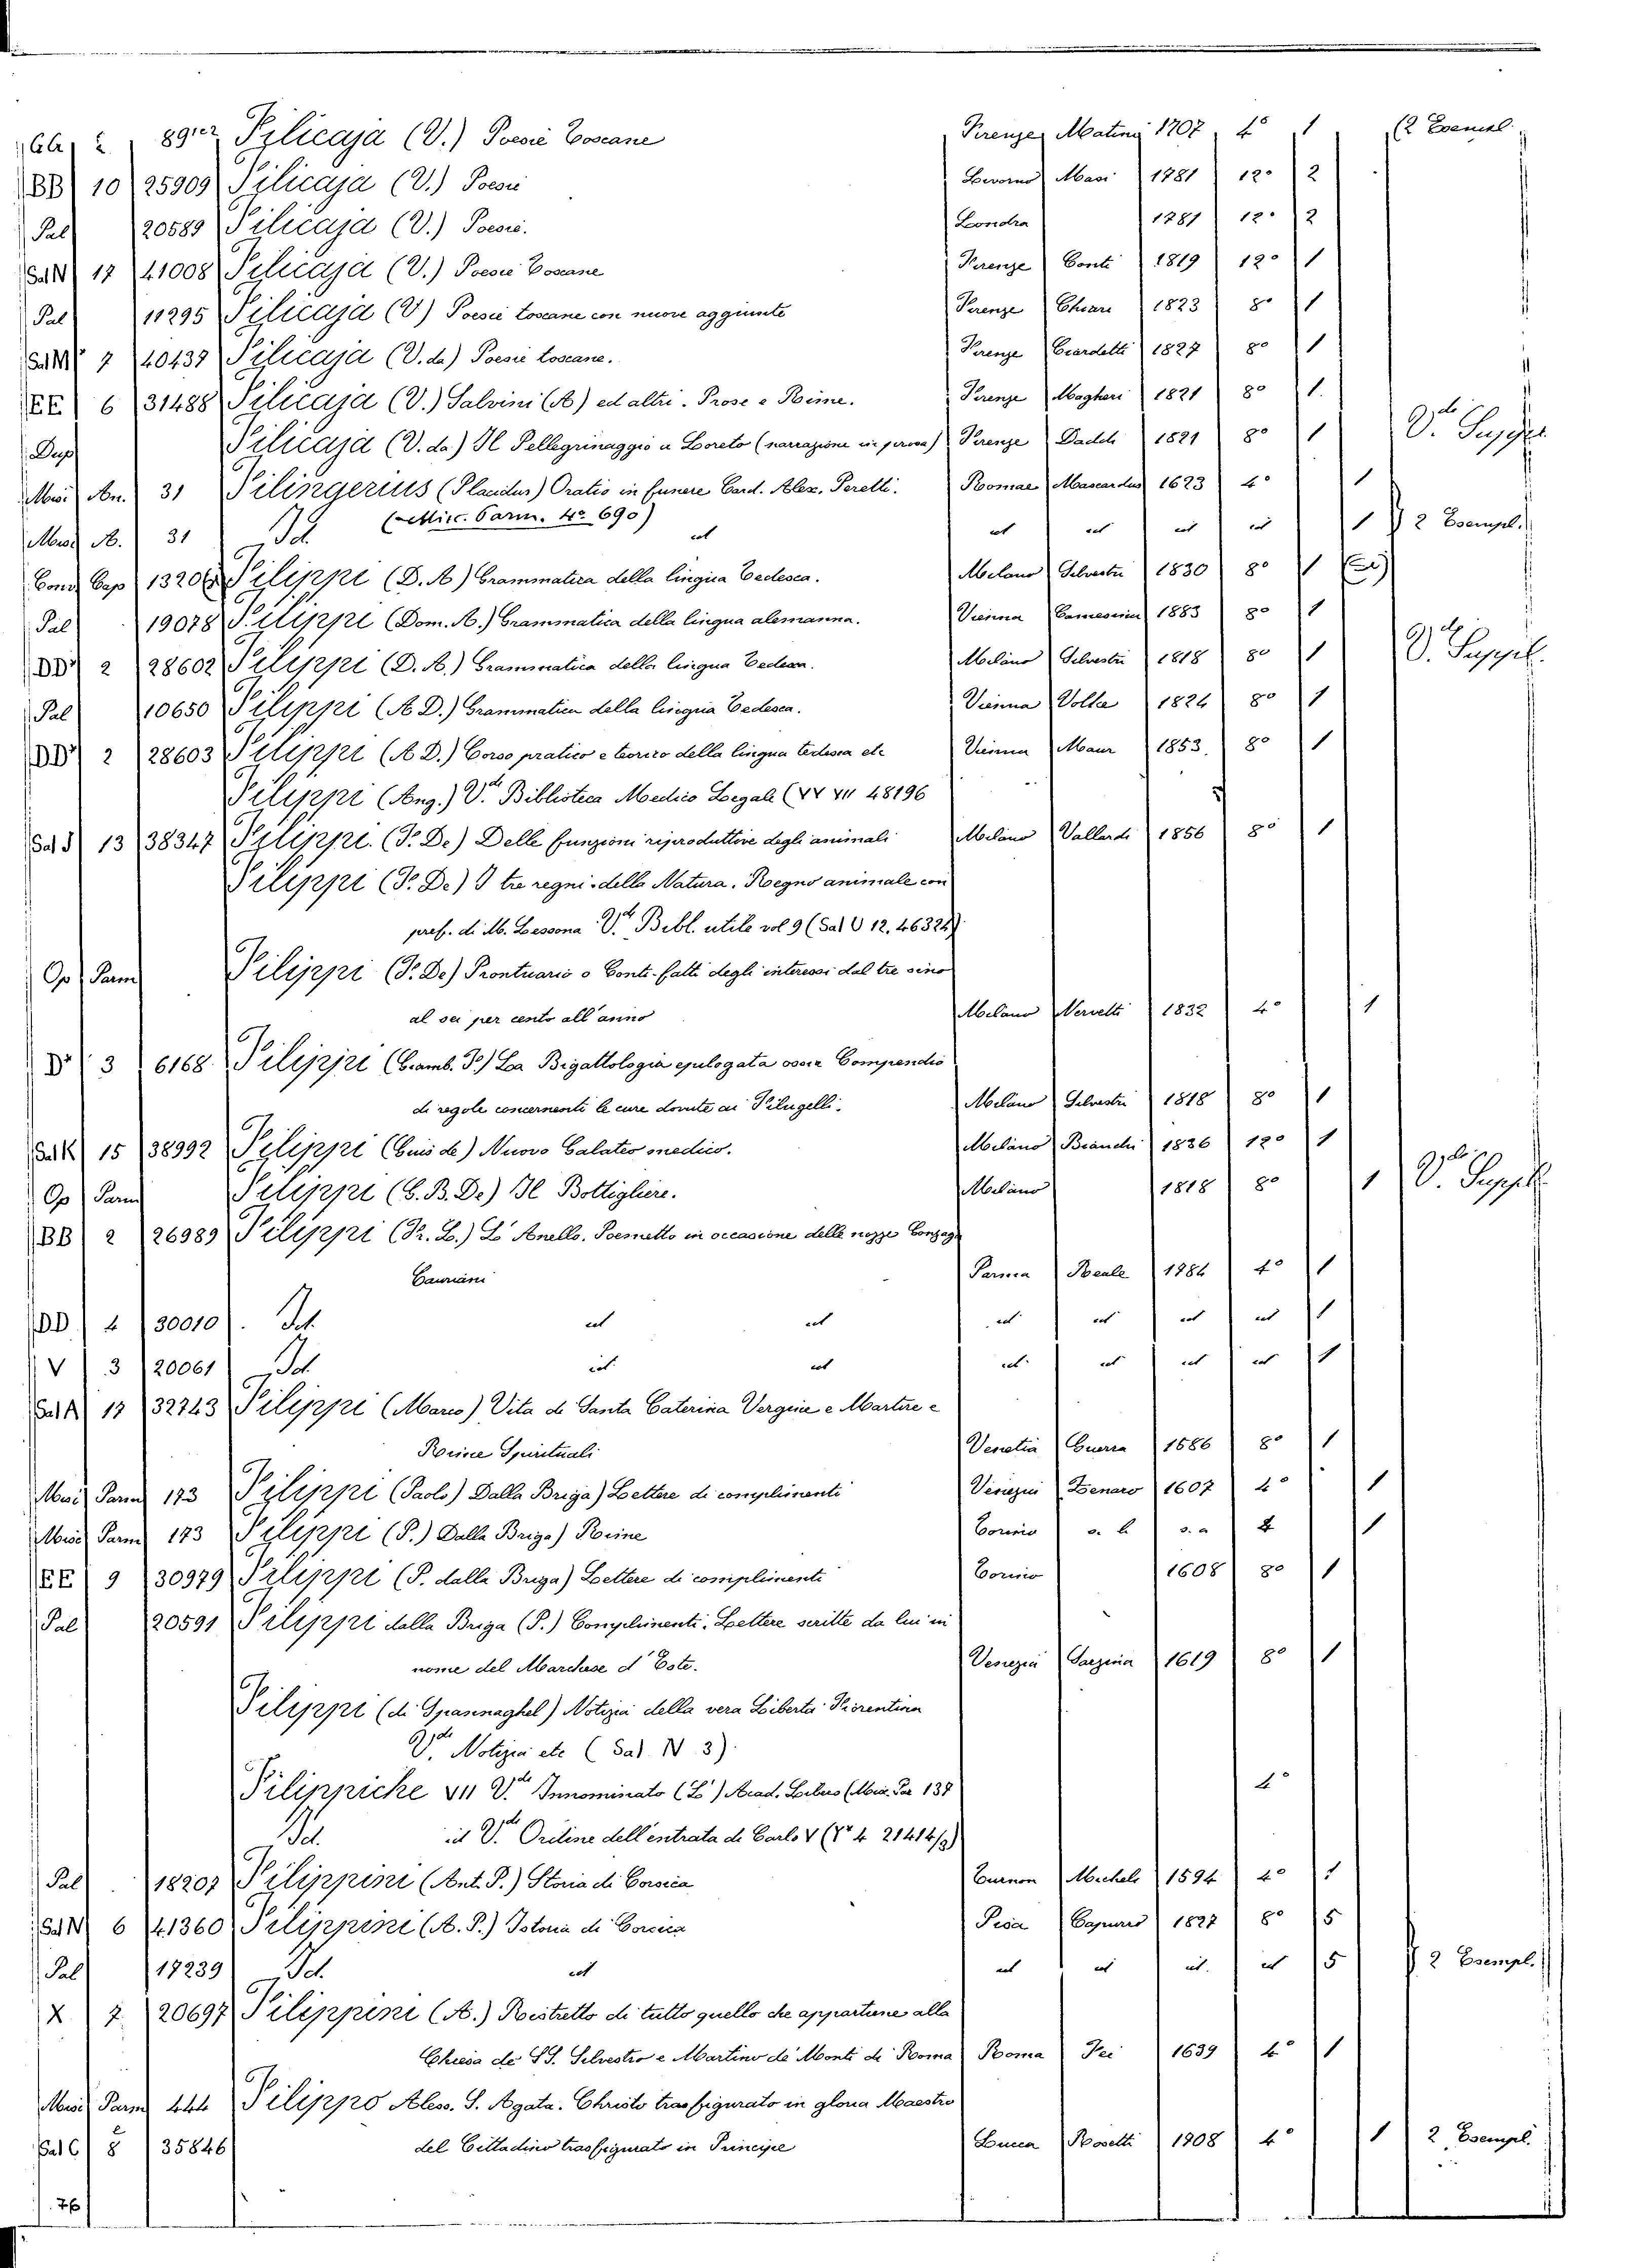 89 ter Filicaja (V.) Poesie Toscane Firenze Matini 1707 4° 1 (2 Esempl.
BB 10 25909 Filicaja (V.) Poesie Livorno Masi 1781 12° 2
Pal 20589 Filicaja (V.) Poesie. Londra 1781 12° 2
Sal N 17 41008 Filicaja (V.) Poesie Toscane Firenze Conti 1819 12° 1
Pal 11295 Filicaja (V) Poesie toscane con nuove aggiunte Firenze Chiari 1823 8° 1
Sal M 7 40437 Filicaja (V. da) Poesie toscane. Firenze Ciardetti 1827 8° 1
EE 6 31488 Filicaja (V.) Salvini (A) ed altri. Prose e Rime. Firenze Magheri 1821 8° 1
Dup Filicaja (V. da) Il Pellegrinaggio a Loreto (narrazione in prosa) Firenze Daddi 1821 8° 1 V.di Suppl.
Misc An. 31 Filingerius (Placidus) Oratio in funere Card. Alex. Peretti. Romae Mascardus 1623 4° 1
Misc A. 31 Id. (Misc. Parm. 4° 690) id id id id id 1 2 Esempl.
Cons Cap 1320 Filippi (D. A) Grammatica della lingua Tedesca. Milano Silvestri 1830 8° 1
Pal 19078 Filippi (Dom. A.) Grammatica della lingua alemanna. Vienna Camesina 1883 8° 1
DD 2 28602 Filippi (D. A.) Grammatica della lingua Tedesca. Milano Silvestri 1818 8° 1 V.di Suppl.
Pal 10650 Filippi (A D.) Grammatica della lingua Tedesca. Vienna Volke 1824 8° 1
DD 2 28603 Filippi (A D.) Corso pratico e teorico della lingua tedesca etc Vienna Maur 1853. 8° 1
Filippi (Ang.) V.di Biblioteca Medico Legale (VV VII 48196
Sal S 13 38347 Filippi. (F. De) Delle funzioni riproduttive degli animali Milano Vallardi 1856 8° 1
Filippi (F. De) I tre regni della Natura. Regno animale con
pref. di M. Lessona V.di Bibl. utile vol 9 (Sal U 12. 46324)
Op Parm Filippi (F. De) Prontuario o Conti-fatti degli interessi dal tre sino
al sei per cento all'anno Milano Nervetti 1832 4° 1
3 6168 Filippi (Giamb. F.) La Bigattologia epilogata ossia Compendio
di regole concernenti le cure dovute ai Filugelli. Milano Silvestri 1818 8° 1
Sal K 15 38992 Filippi (Gius de) Nuovo Galateo medico. Milano Bianchi 1836 12° 1
Op Parm Filippi (G. B. De) Il Bottigliere. Milano 1818 8° 1 V.di Suppl.
BB 2 26989 Filippi (Fr. L.) L'Anello. Poemetto in occasione delle nozze Gonzaga
Gauriani Parma Reale 1784 4° 1
DD 4 30010 Id. id id id id id id 1
V 3 20061 Id id id id id id id 1
Sal A 17 32743 Filippi (Marco) Vita di Santa Caterina Vergine e Martire e
Rime Spirituali Venetia Guerra 1586 8° 1
Misc Parm 173 Filippi (Paolo) Dalla Briga) Lettere di complimenti Venezia Zenaro 1607 4° 1
Misc Parm 173 Filippi (P.) Dalla Briga) Rime Torino s. t. s. a 4 1
EE 9 30979 Filippi (P. dalla Briga) Lettere di complimenti Torino 1608 8° 1
Pal 20591 Filippi dalla Briga (P.) Complimenti. Lettere scritte da lui in
nome del Marchese d'Este. Venezia Sarzina 1619 8° 1
Filippi (di Spannaghel) Notizia della vera Libertà Fiorentina
V.di Notizia etc (Sal. N 3)
Filippiche VII V.di Innominato (L') Acad. Libero (Misc. Par 137 4°
Id. id V.di Ordine dell'entrata di Carlo V 4 21414/3)
Pal 18207 Filippini (Ant. P.) Storia di Corsica Turnon Michele 1594 4° 1
Sal N 6 41360 Filippini (A. P.) Istoria di Corsica Pisa Capurro 1827 8° 5
Pal 17239 Id. id id id id. id 5 2 Esempl.
X 7. 20697 Filippini (A.) Ristretto di tutto quello che appartiene alla
Chiesa de' SS. Silvestro e Martino de' Monti di Roma Roma Fei 1639 4° 1
Misc Parm 444 Filippo Aless. S. Agata. Christo trasfigurato in gloria Maestro
Sal C 8 35846 del Cittadino trasfigurato in Principe Lucca Rosetti 1708 4° 1 2 Esempl.
76